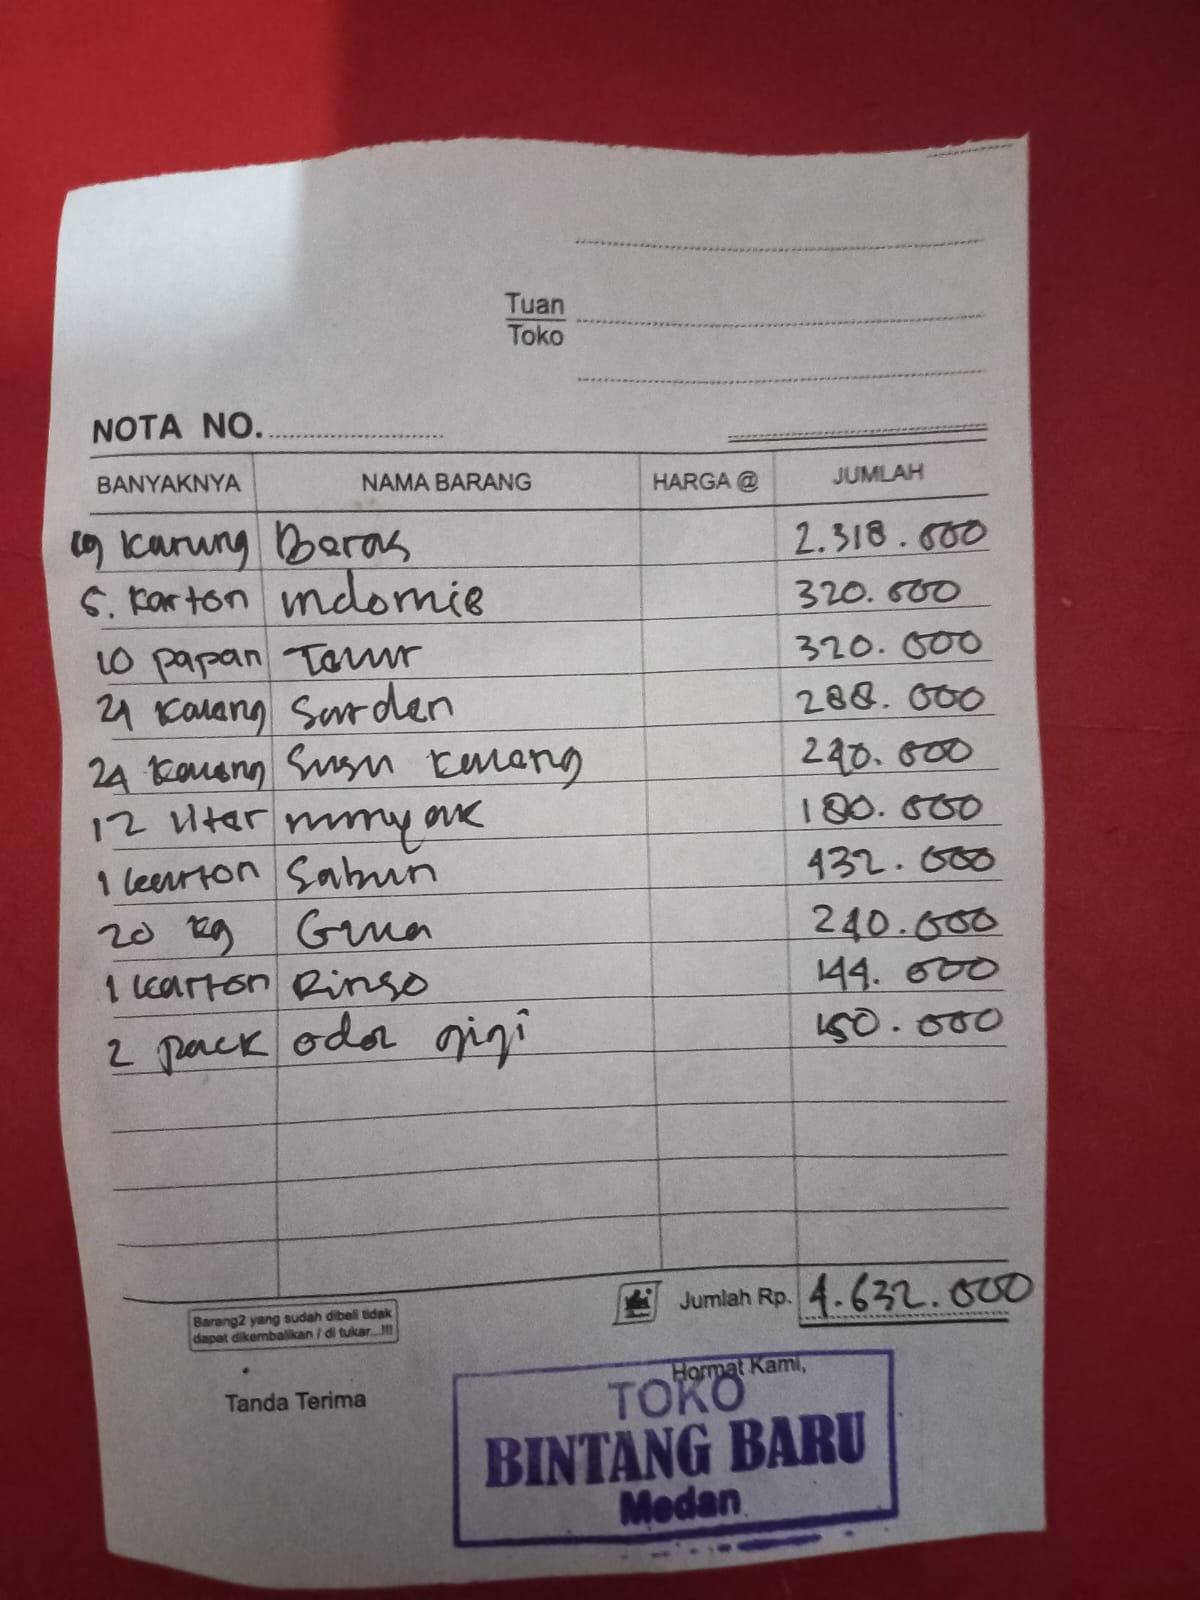 Tuan
Toko
NOTA NO.
BANYAKNYA NAMA BARANG HARGA @ JUMLAH
19 Karung Beras 2.318.000
5. Karton indomie 320.000
10 papan Telur 320.000
24 Kaleng Sarden 288.000
24 Kaleng Susu Kaleng 240.000
12 liter minyak 180.000
1 karton Sabun 432.000
20 kg Gula 240.000
1 karton Rinso 144.000
2 pack odol gigi 150.000
Jumlah Rp. 4.632.000
Barang2 yang sudah dibeli tidak
dapat dikembalikan / di tukar...!!!
Tanda Terima
Hormat Kami,
TOKO
BINTANG BARU
Medan